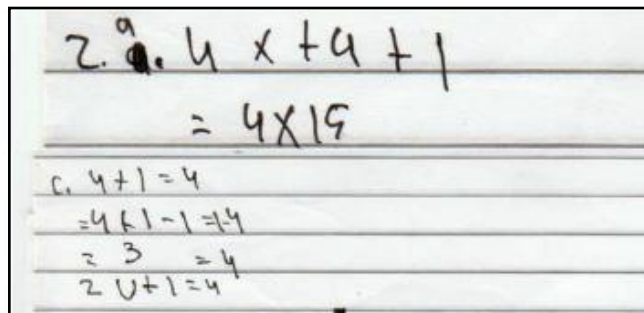 2. a. 4 x + 4 + 1
= 4x19
c. 4 + 1 = 4
= 4 + 1 - 1 = 1-4
= 3 = 4
2 U + 1 = 4